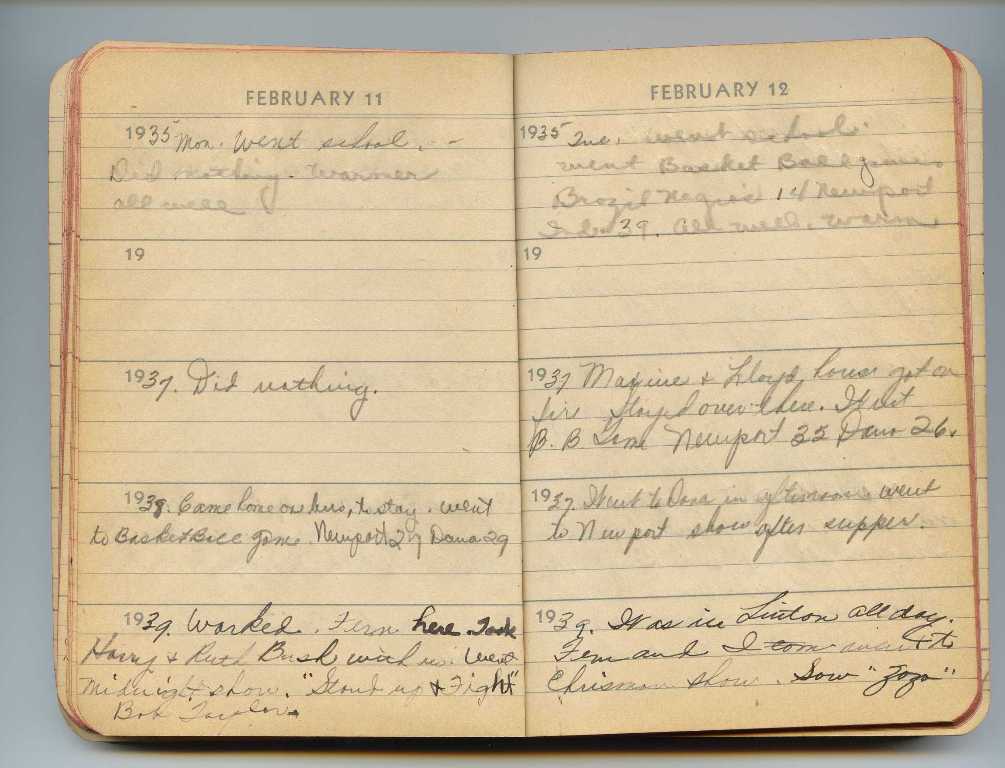 FEBRUARY 11
1935 Mon. Went school. - -
Did nothing. Warmer
all well
19
1937. Did nothing.
1938. Came home on bus, to stay. went
to BasketBall game. Newport 27 Dana 29
1939. Worked. Fern here. Took
Harry & Ruth Bush with us. Went
Midnight show. "Stand up & Fight"
Bob Taylor.
FEBRUARY 12
1935 Tue. went school.
went Basket Ball game
Brazil 14 Newport
Ind. 39. All well. warm.
19
1937 Maxine & Lloyd house got on
fire Stayed over there. Went
B. B Game Newport 25 Dana 26.
1937. Went to Dana in afternoon went
to Newport show after supper.
1939. Was in Linton all day.
Fern and I went to
Chrisman show. Saw "Zaza".